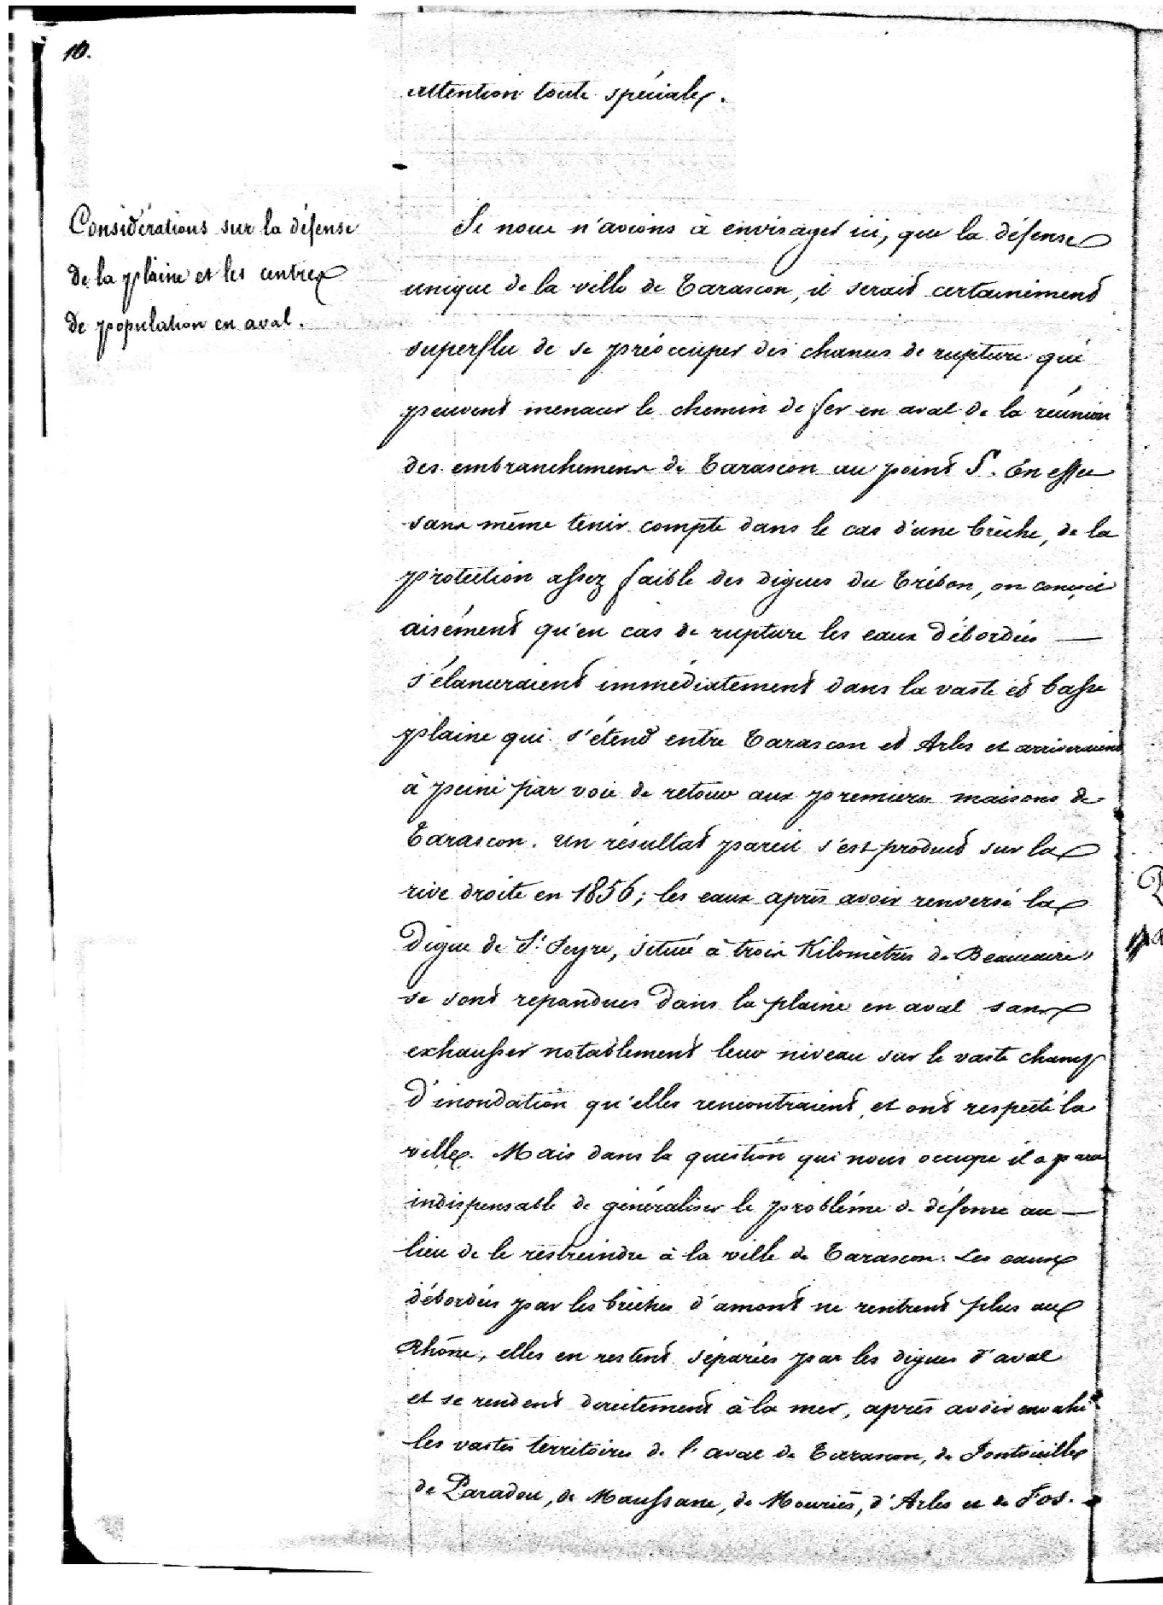 10.
attention toute spéciale.
Considérations sur la défense
de la plaine et les centres
de population en aval.
Si nous n'avions à envisager ici, que la défense
unique de la ville de Tarascon, il serait certainement
superflu de se préoccuper des chances de rupture qui
peuvent menacer le chemin de fer en aval de la réunion
des embranchemens de Tarascon au point S. En effet
sans même tenir compte dans le cas d'une brèche, de la
protection assez faible des digues du Trébon, on conçoit
aisément qu'en cas de rupture les eaux débordées —
s'élanceraient immédiatement dans la vaste et basse
plaine qui s'étend entre Tarascon et Arles et arriveraient
à peine par voie de retour aux premières maisons de
Tarascon. Un résultat pareil s'est produit sur la
rive droite en 1856; les eaux après avoir renversé la
digue de St. Seyre, située à trois Kilomètres de Beaucaire
se sont repandues dans la plaine en aval sans
exhausser notablement leur niveau sur le vaste champ
d'inondation qu'elles rencontraient, et ont respecté la
ville. Mais dans la question qui nous occupe il a paru
indispensable de généraliser le problème de défense au —
lieu de le restreindre à la ville de Tarascon. Les eaux
débordées par les brèches d'amont ne rentrent plus au
Rhône, elles en restent séparées par les digues d'aval
et se rendent directement à la mer, après avoir envahi
les vastes territoires de l'aval de Tarascon, de Fontvieille
de Paradou, de Maussane, de Mouriès, d'Arles et de Fos.